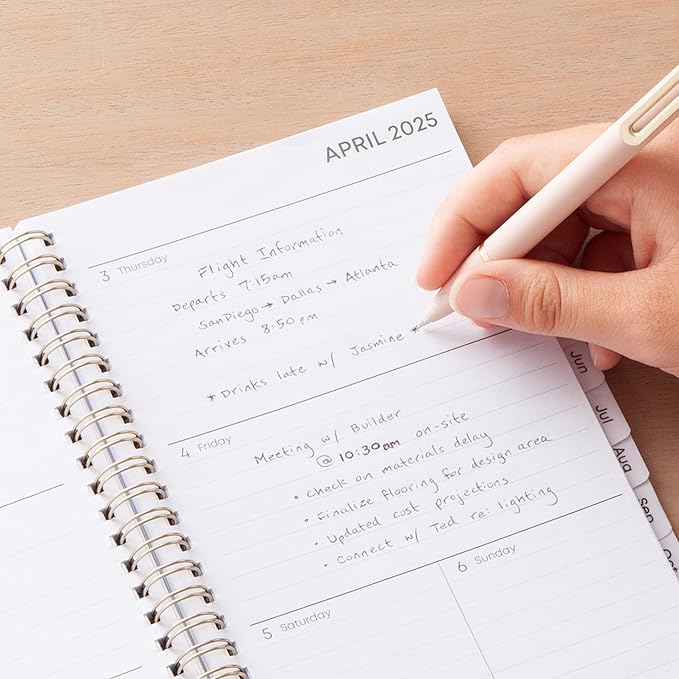 APRIL 2025
3 Thursday
Flight Information
Departs 7:15am
SanDiego → Dallas → Atlanta
Arrives 8:50pm
* Drinks late w/ Jasmine *
4 Friday
Meeting w/ Builder
@ 10:30am on-site
• Check on materials delay
• Finalize flooring for design area
• Updated cost projections
• Connect w/ Ted re: lighting
5 Saturday
6 Sunday
Jun
Jul
Aug
Sep